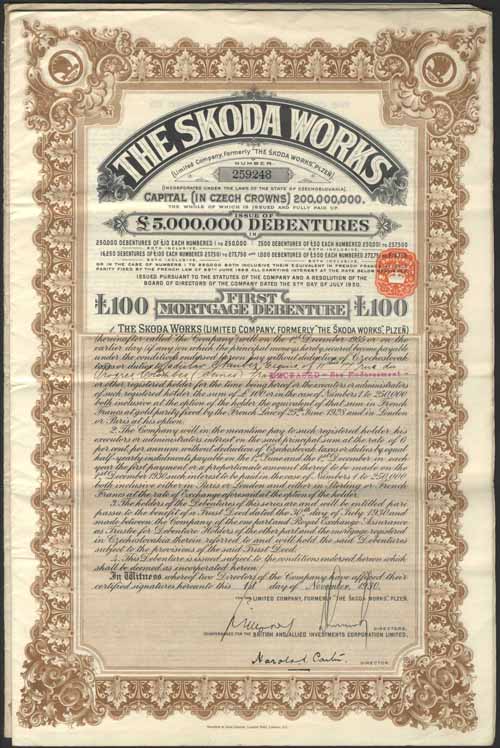 THE SKODA WORKS
(Limited Company, Formerly "THE ŠKODA WORKS", PLZEŇ)
NUMBER
259248
(INCORPORATED UNDER THE LAWS OF THE STATE OF CZECHOSLOVAKIA)
CAPITAL (IN CZECH CROWNS) 200,000,000.
THE WHOLE OF WHICH IS ISSUED AND FULLY PAID UP.
ISSUE OF
£5,000,000 DEBENTURES
IN
250,000 DEBENTURES OF £10 EACH NUMBERED 1 to 250,000 7,500 DEBENTURES OF £50 EACH NUMBERED 250,001 TO 257,500
BOTH INCLUSIVE, BOTH INCLUSIVE,
16,250 DEBENTURES OF £100 EACH NUMBERED 257,501 TO 273,750 AND 1,000 DEBENTURES OF £500 EACH NUMBERED 273,751
BOTH INCLUSIVE, BOTH INCLUSIVE
OR IN THE CASE OF NUMBERS 1 TO 250,000 BOTH INCLUSIVE THEIR EQUIVALENT IN FRENCH
PARITY FIXED BY THE FRENCH LAW OF 25TH JUNE 1928 ALL CARRYING INTEREST AT THE RATE BELOW
ISSUED PURSUANT TO THE STATUTES OF THE COMPANY AND A RESOLUTION OF THE
BOARD OF DIRECTORS OF THE COMPANY DATED THE 5TH DAY OF JULY 1930.
£100 FIRST MORTGAGE DEBENTURE £100
THE SKODA WORKS (LIMITED COMPANY, FORMERLY "THE ŠKODA WORKS", PLZEŇ)
hereinafter called the Company will on the 1st December 1955 or on the
earlier day if any on which the principal moneys hereby secured become payable
under the conditions endorsed hereon pay without deduction of Czechoslovak
taxes or duties to
or other registered holder for the time being hereof or the executors or administrators
of such registered holder the sum of £100 or in the case of Numbers 1 to 250,000
both inclusive at the option of the holder the equivalent of that sum in French
Francs at gold parity fixed by the French Law of 25th June 1928 and in London
or Paris at his option.
2. The Company will in the meantime pay to such registered holder his
executors or administrators interest on the said principal sum at the rate of 6
per cent. per annum without deduction of Czechoslovak taxes or duties by equal
half-yearly instalments payable on the 1st June and the 1st December in each
year the first payment or a proportionate amount thereof to be made on the
1st December 1930 such interest to be paid in the case of Numbers 1 to 250,000
both inclusive either in Paris or London and either in Sterling or French
Francs at the rate of Exchange aforesaid at the option of the holder.
3. The holders of the Debentures of this series are and will be entitled pari
passu to the benefit of a Trust Deed dated the 30th day of July 1930 and
made between the Company of the one part and Royal Exchange Assurance
as Trustee for Debenture Holders of the other part and the mortgage rendered
in Czechoslovakia therein referred to and will hold the said Debentures
subject to the provisions of the said Trust Deed.
4. This Debenture is issued subject to the conditions endorsed hereon which
shall be deemed as incorporated herein.
In Witness whereof two Directors of the Company have affixed their
certified signatures hereunto this 1st day of November, 1930.
FOR THE LIMITED COMPANY, FORMERLY "THE ŠKODA WORKS", PLZEŇ.
DIRECTORS.
COUNTERSIGNED FOR THE BRITISH AND ALLIED INVESTMENTS CORPORATION LIMITED,
Harold S. Carter
DIRECTOR.